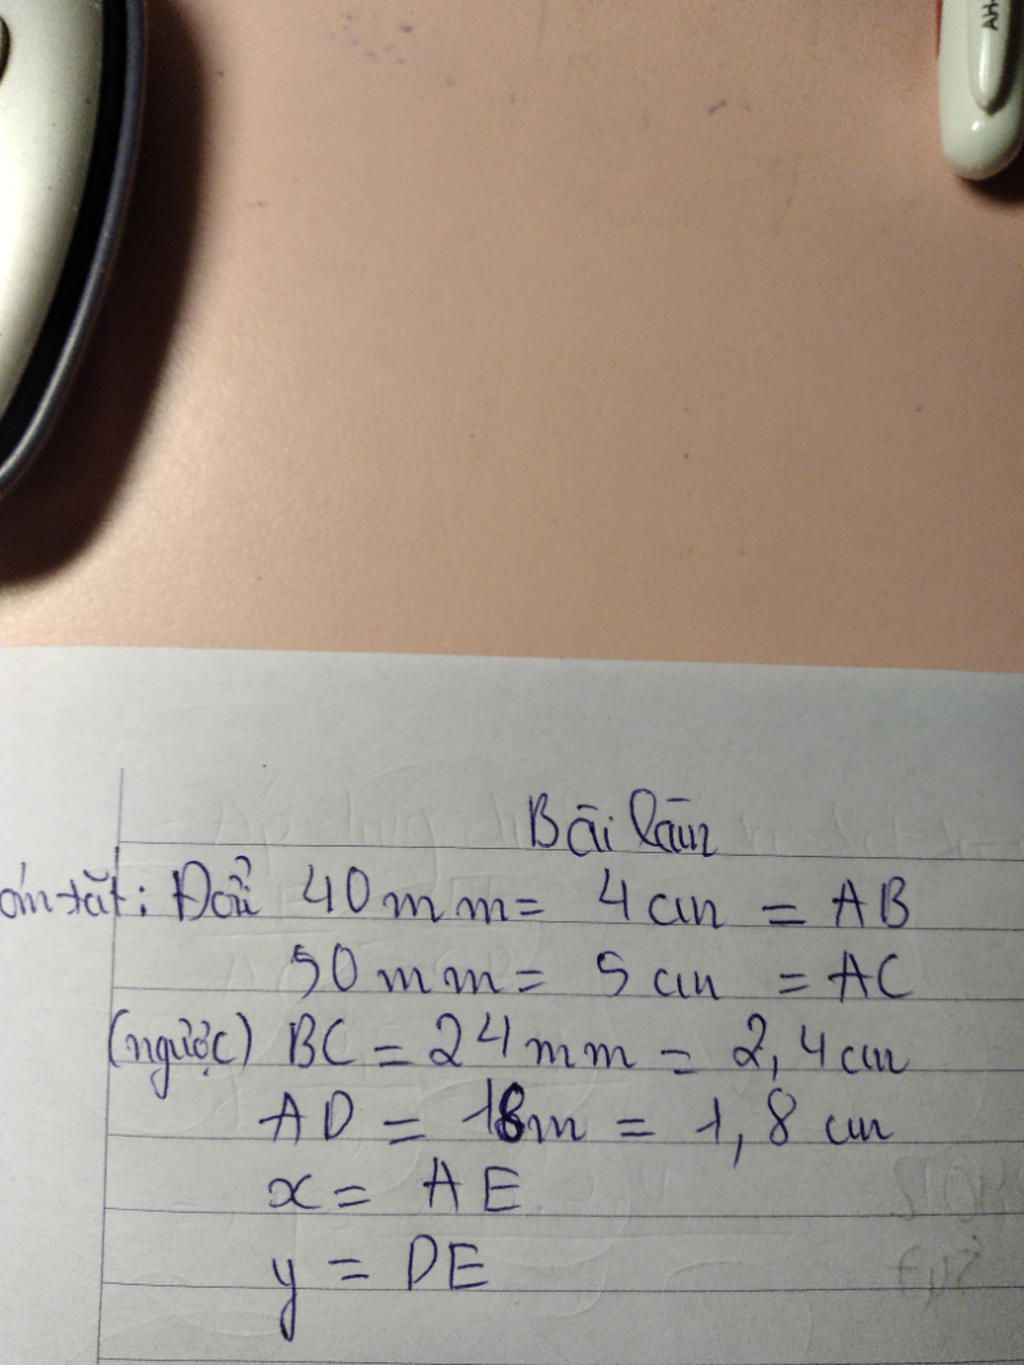 AH-
Bài làm
óm tắt: Đổi 40mm = 4cm = AB
50mm = 5cm = AC
(ngược) BC = 24mm = 2,4cm
AD = 18m = 1,8cm
x = AE
y = DE